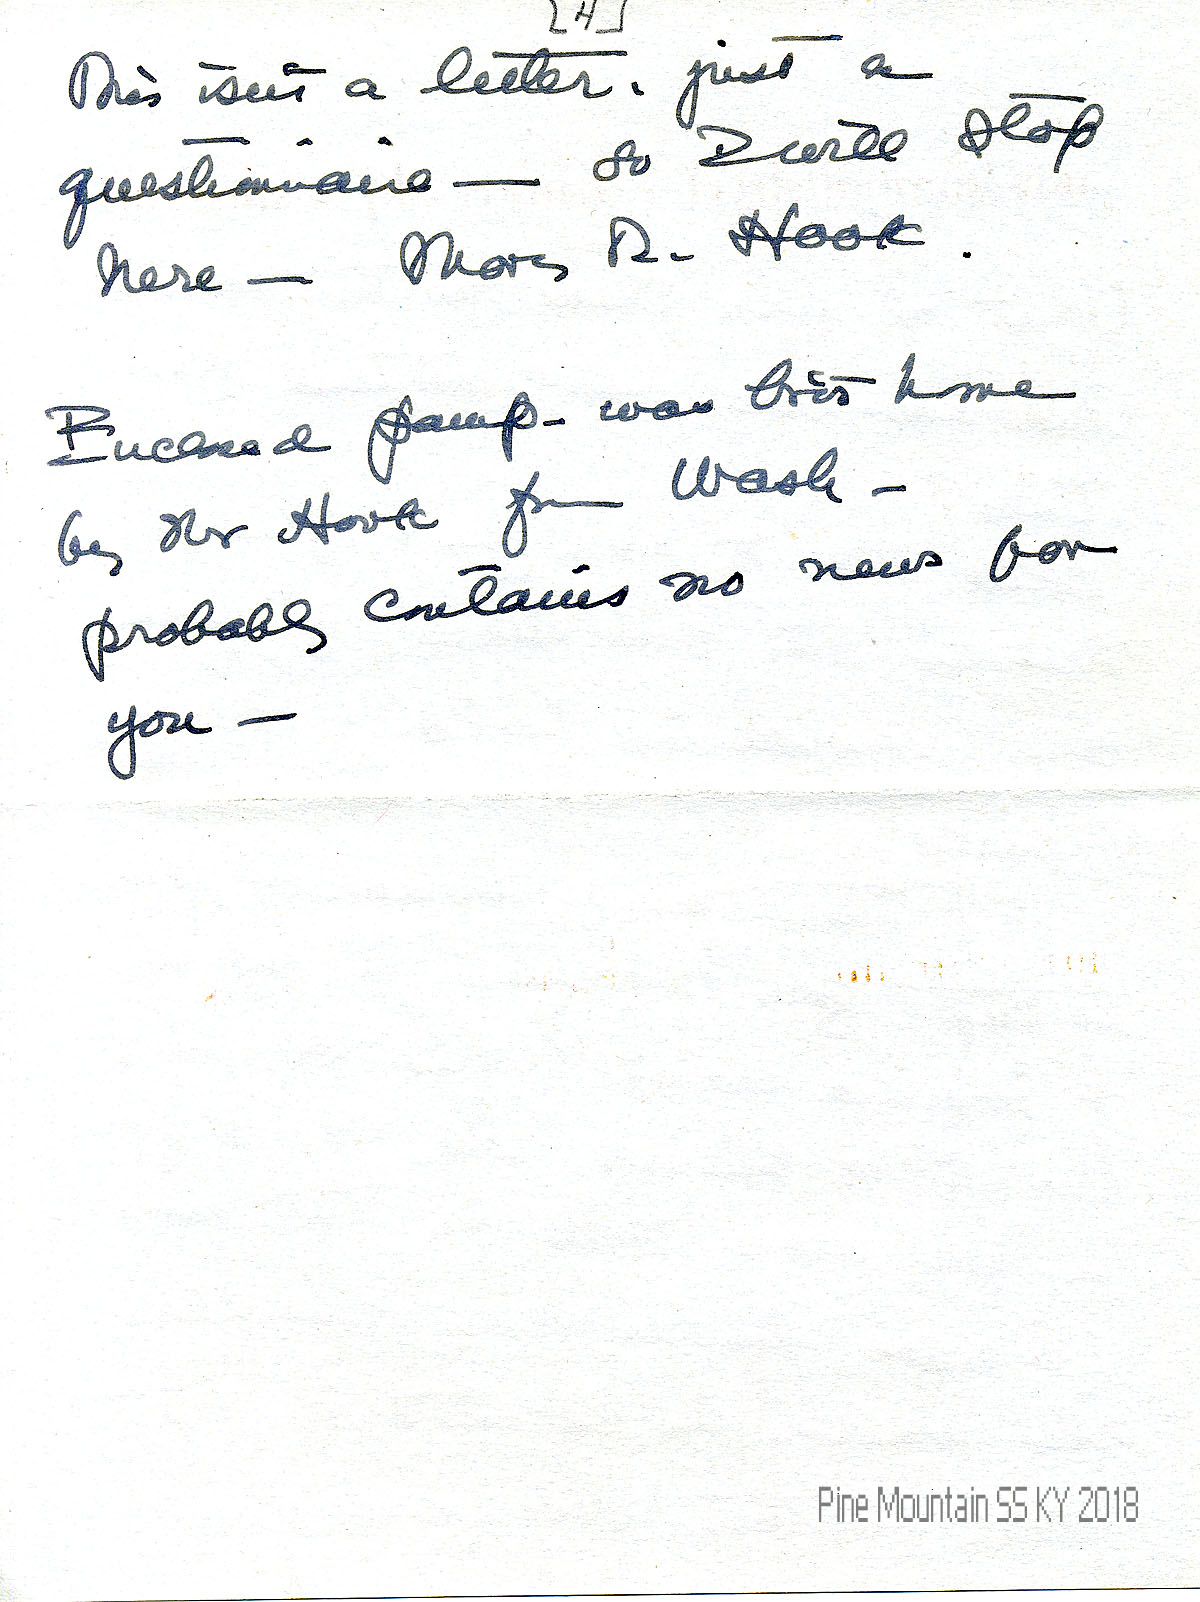 [4]
This isn't a letter. just a
questionnaire — so I will stop
here — Mary R. Hook.
Enclosed pamp- was bro't home
by Mr Hook from Wash –
probably contains no news for
you —
Pine Mountain SS KY 2018